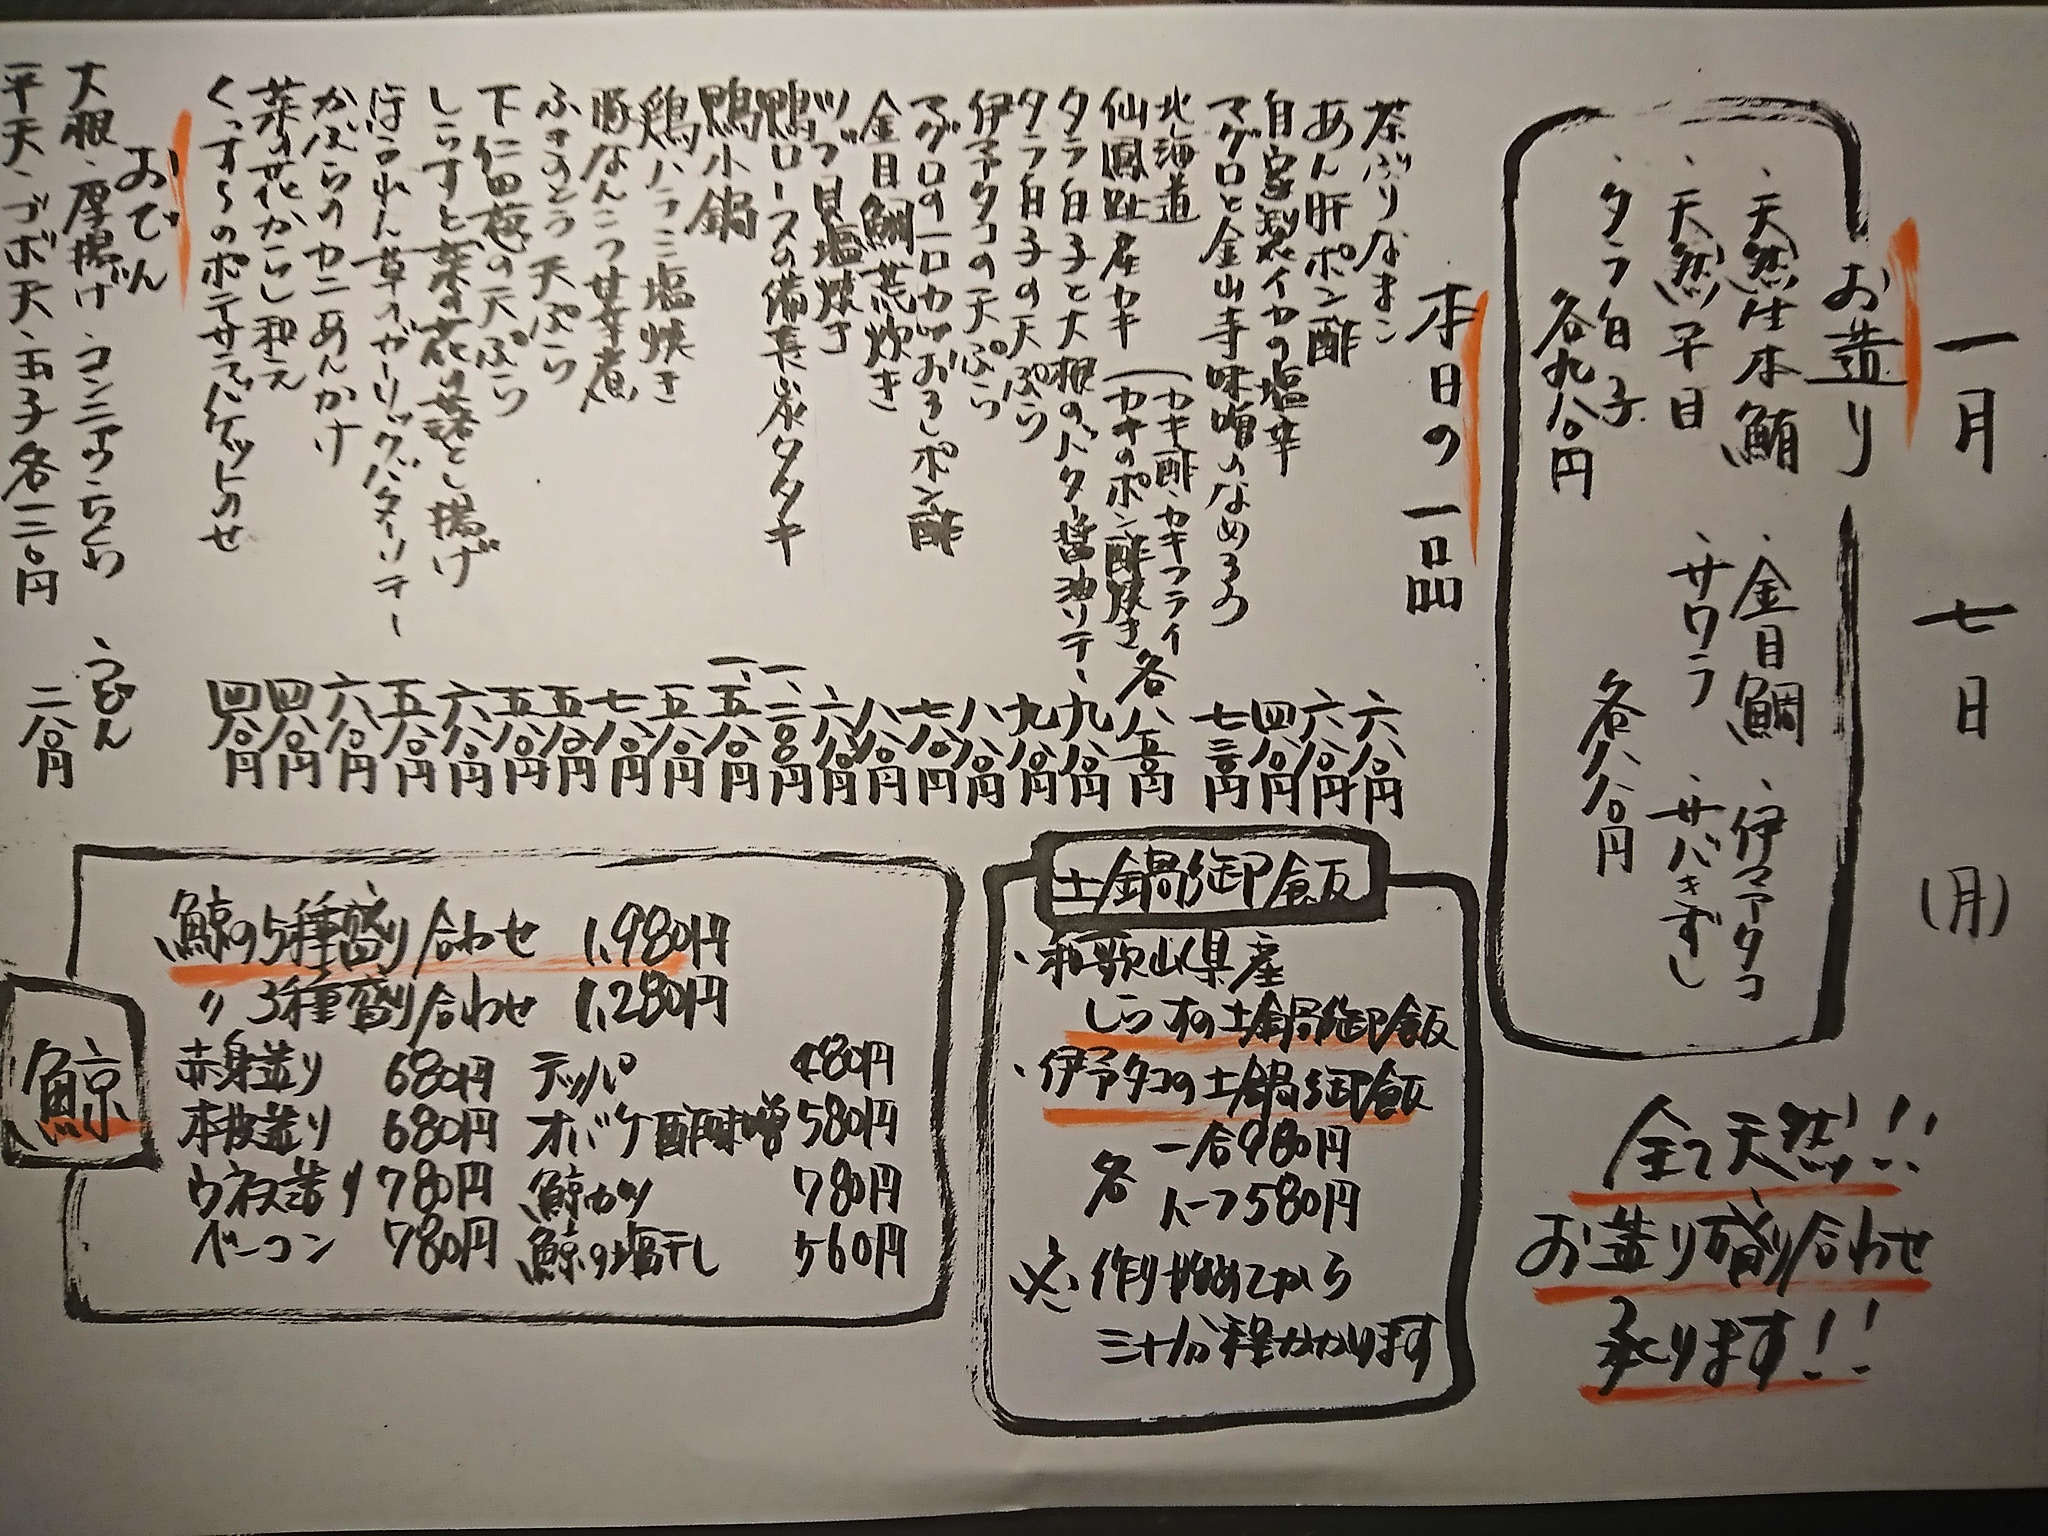 一月 七日 (月)
お造り
・天然生本鮪 ・金目鯛 ・伊予タコ
・天然平目 ・サワラ ・サバきずし
・タラ白子
各九八〇円 各八八〇円
全て天然!!
お造り盛り合わせ
承ります!!
本日の一品
茶ぶりなまこ 六八〇円
あん肝ポン酢 六八〇円
自家製イカの塩辛 四八〇円
マグロと金山寺味噌のなめろう 七三〇円
北海道 (カキ酢・カキフライ
仙鳳趾産カキ (カキのポン酢焼き 各八五〇円
タラ白子と大根のバター醤油ソテー 九八〇円
タラ白子の天ぷら 九八〇円
伊予タコの天ぷら 八八〇円
マグロの一口カツおろしポン酢 七八〇円
金目鯛荒炊き 八八〇円
ツブ貝塩炊き 六八〇円
鴨ロースの備長炭タタキ 一、二〇〇円
鴨小鍋 一、五八〇円
鶏ハラミ塩焼き 五八〇円
豚なんこつ甘辛煮 七八〇円
ふきのとう天ぷら 五八〇円
下仁田葱の天ぷら 五八〇円
しらすと菜の花の落とし揚げ 六八〇円
ほうれん草のガーリックバターソテー 五八〇円
かぶらのカニあんかけ 六八〇円
菜の花からし和え 四八〇円
くっす〜のポテサラバゲットのせ 四八〇円
おでん
大根・厚揚げ・コンニャク・ちくわ ・うどん
平天・ゴボ天・玉子 各一三〇円 二八〇円
土鍋御飯
・和歌山県産
しらすの土鍋御飯
・伊予タコの土鍋御飯
各 一合980円
ハーフ580円
※作り始めてから
三十分程かかります
鯨
鯨の5種盛り合わせ 1,980円
〃 3種盛り合わせ 1,280円
赤身造り 680円 テッパ 480円
本皮造り 680円 オバケ酢味噌 580円
ウネス造り 780円 鯨カツ 780円
ベーコン 780円 鯨の塩干し 560円